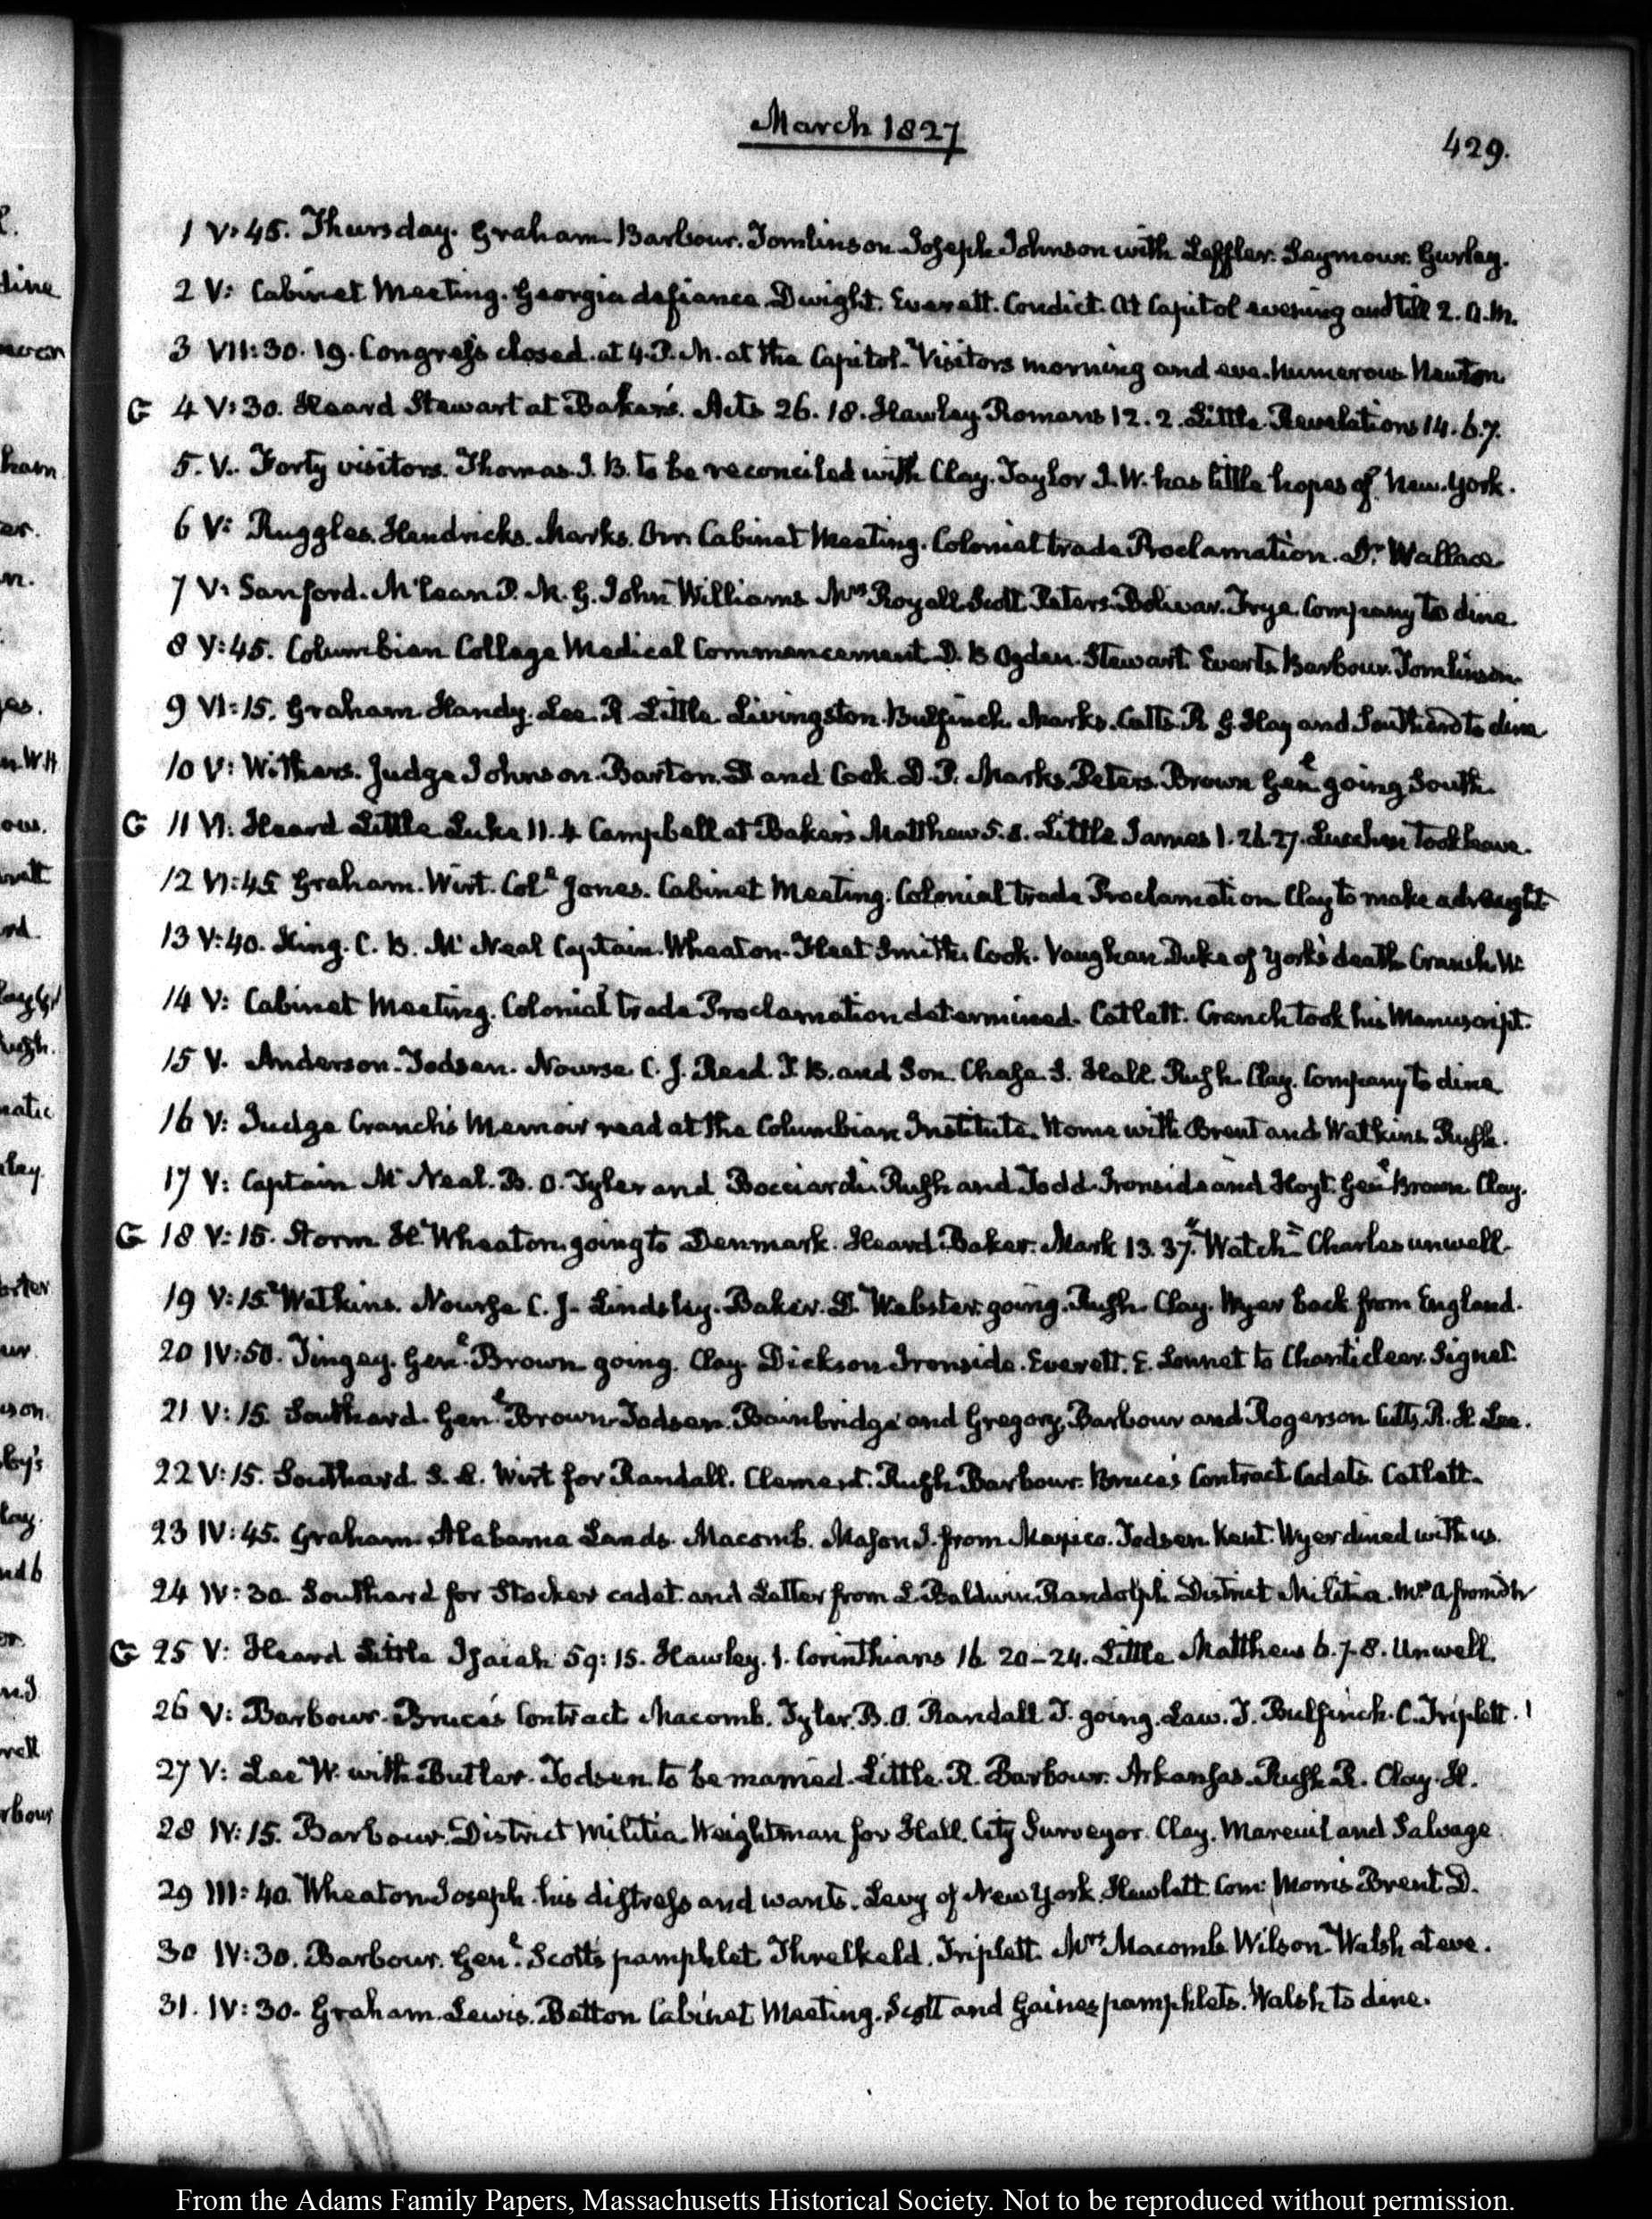 March 1827
429.
1 V:45. Thursday. Graham. Barbour. Tomlinson Joseph Johnson with Leffler. Seymour. Gurley.
2 V: Cabinet Meeting. Georgia defiance Dwight. Everett. Condict. At Capitol evening and till 2. A.M.
3 VII:30. 19. Congress closed at 4. P.M. at the Capitol. Visitors morning and eve. numerous Newton
G 4 V:30. Heard Stewart at Baker's. Acts 26. 18. Hawley Romans 12. 2. Little Revelations 14. 6.7.
5. V. Forty visitors. Thomas J. B. to be reconciled with Clay. Taylor J. W. has little hopes of New. York.
6 V: Ruggles. Hendricks. Marks. Orr. Cabinet Meeting. Colonial trade Proclamation. Dr. Wallace
7 V: Sanford. McLean P. M. G. John Williams Mrs Royall Scott Peters. Bolivar. Frye. Company to dine.
8 V:45. Columbian College Medical Commencement. D. B. Ogden. Stewart. Everts Barbour. Tomlinson.
9 VI:15. Graham Handy. Lee. R. Little. Livingston. Bulfinch. Marks. Cutts. R. G. Hay and Southard to dine
10 V: Withers. Judge Johnson. Barton. D and Cook. D. P. Marks. Peters. Brown Genl. going South.
G 11 VI: Heard Little Luke 11. 4 Campbell at Baker's Matthew 5. 8. Little James 1. 26.27. took leave.
12 VI:45 Graham. Wirt. Coll Jones. Cabinet Meeting. Colonial trade Proclamation Clay to make a draught
13 V:40. King. C. B. Mc Neal Captain. Wheaton. Fleet Smith. Cook. Vaughan Duke of York's death Cranch W.
14 V: Cabinet Meeting. Colonial trade Proclamation determined. Catlett. Cranch took his Manuscript.
15 V. Anderson. Todsen. Nourse C. J. Reed. J. B. and Son. Chase. S. Hall. Rush. Clay. Company to dine
16 V: Judge Cranch's Memoir read at the Columbian Institute. Home with Brent and Watkins. Rush.
17 V: Captain Mc Neal. B. O. Tyler and Bocciardi. Rush and Todd. Ironside and Hoyt. Genl Brown. Clay.
G 18 V:15. Storm. H. Wheaton going to Denmark. Heard Baker. Mark 13. 37. "Watch" Charles unwell.
19 V:15. Watkins. Nourse C. J. Lindsley. Baker. D. Webster going. Rush. Clay. Wyer back from England.
20 IV:50. Tingey. Genl. Brown going. Clay Dickson Ironside. Everett. E. Sonnet to Chanticleer. Signet.
21 V:15 Southard. Genl Brown. Todsen. Bainbridge and Gregory. Barbour and Rogerson Cutts. R. H. Lee.
22 V:15. Southard S. L. Wirt for Randall. Clement. Rush Barbour. Bruce's Contract Cadets. Catlett.
23 IV:45. Graham. Alabama Lands. Macomb. Mason J. from Mexico. Todsen. Kent. Wyer dined with us.
24 IV:30. Southard for Stocker cadet and Letter from L. Baldwin. Randolph District Militia. Mrs A from
G 25 V: Heard Little Isaiah 59:15. Hawley. 1. Corinthians 16. 20-24. Little Matthew 6. 7-8. Unwell.
26 V: Barbour. Bruce's Contract Macomb. Tyler. B. O. Randall T. going. Law. T. Bulfinch. C. Triplett.
27 V: Lee W. with Butler. Todsen. to be married. Little. R. Barbour. Arkansas. Rush R. Clay. H.
28 IV:15. Barbour. District Militia Weightman for Hall. City Surveyor. Clay. Mareuil and Salvage
29 III:40. Wheaton Joseph. his distress and wants. Levy of New York. Hewlett. Com: Morris Brent D.
30 IV:30. Barbour. Genl. Scott's pamphlet Threlkeld. Triplett. Mrs Macomb Wilson. Walsh at eve.
31. IV:30. Graham. Lewis. Betton Cabinet Meeting. Scott and Gaines pamphlets. Walsh to dine.
From the Adams Family Papers, Massachusetts Historical Society. Not to be reproduced without permission.